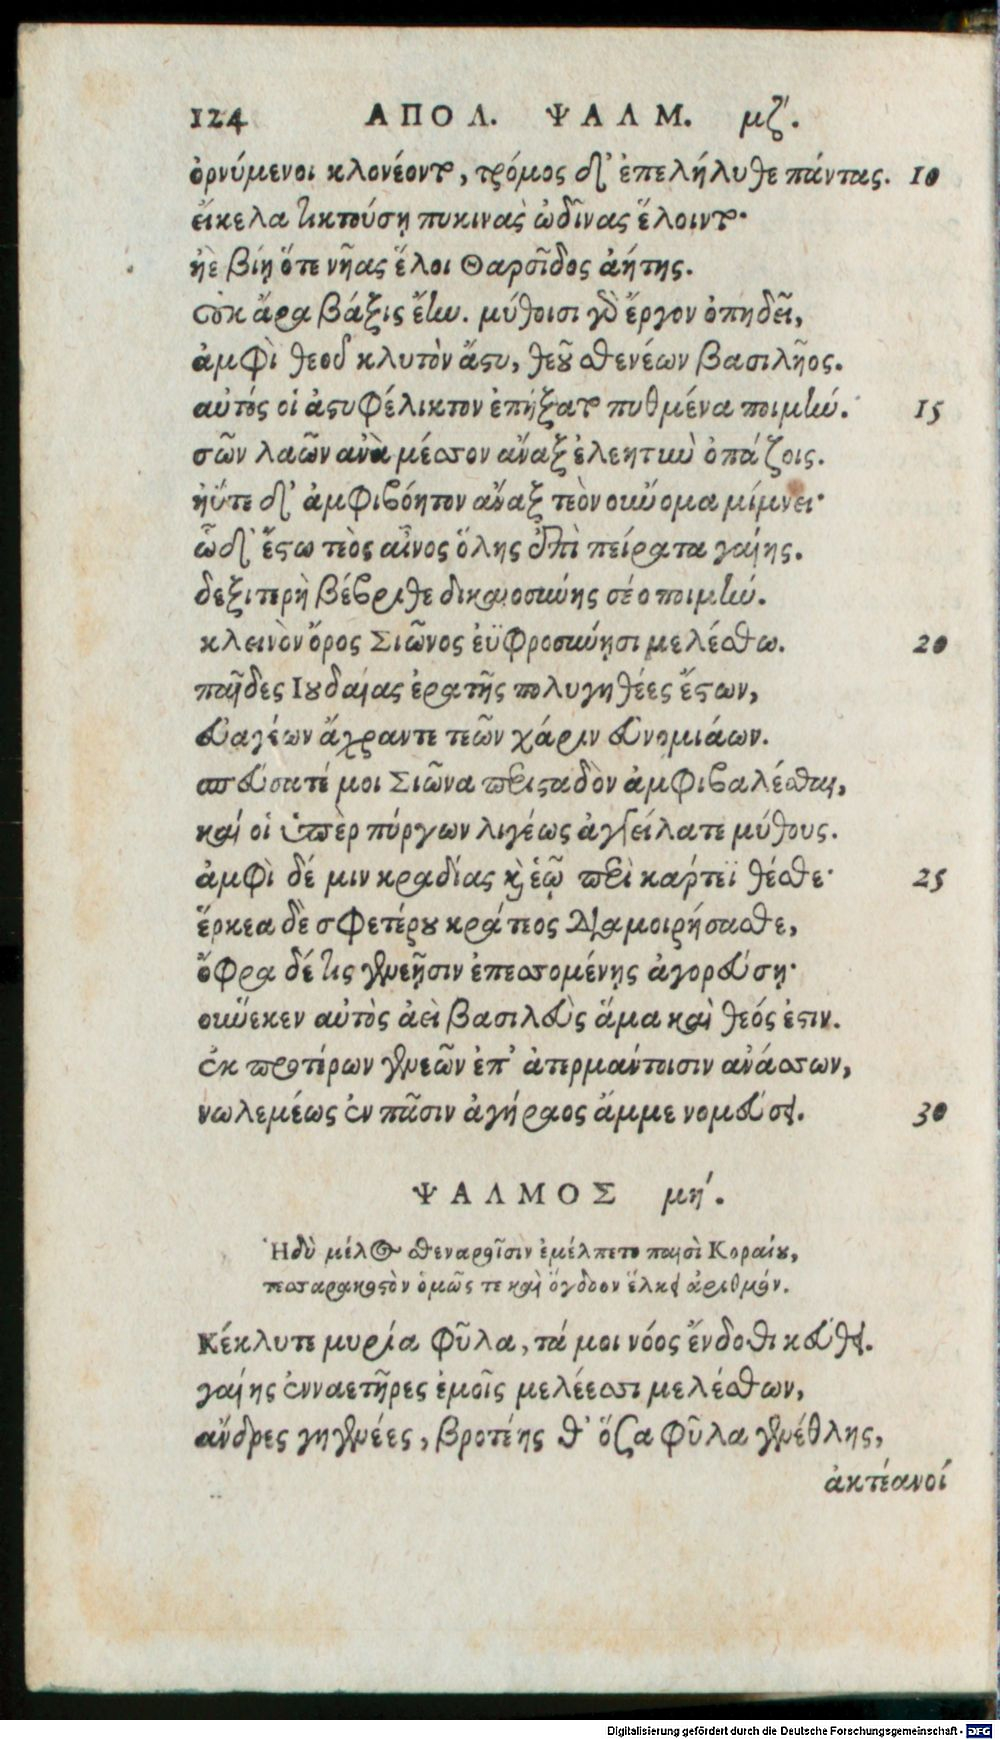 124 ΑΠΟΛ. ΨΑΛΜ. μζ΄.
ὀρνύμενοι κλονέοντο, τρόμος δ' ἐπελήλυθε πάντας. 10
εἴκελα τικτούσῃ πυκινὰς ὠδῖνας ἕλοιντο·
ἠὲ βίῃ ὅτε νῆας ἕλοι Θαρσῖδος ἀήτης.
οὐκ ἄρα βάξις ἔην. μύθοισι γὸ ἔργον ὀπηδεῖ,
ἀμφὶ θεοῦ κλυτὸν ἄστυ, θεοῦ σθενέων βασιλῆος.
αὐτός οἱ ἀστυφέλικτον ἐπήξατο πυθμένα ποιμήν. 15
σῶν λαῶν ἀνὰ μέσσον ἄναξ ἐλεητὺν ὀπάζοις.
ἠΰτε δ' ἀμφιβόητον ἄναξ τεὸν οὔνομα μίμνει·
ὧδ' ἔστω τεὸς αἶνος ὅλης ἐπὶ πείρατα γαίης.
δεξιτερὴ βέβριθε δικαιοσύνης σέο ποιμήν.
κλεινὸν ὄρος Σιῶνος ἐϋφροσύνῃσι μελέσθω. 20
παῖδες Ιουδαίας ἐρατῆς πολυγηθέες ἔστων,
εὐαγέων ἄχραντε τεῶν χάριν εὐνομιάων.
σπεύσατέ μοι Σιῶνα περισταδὸν ἀμφιβαλέσθαι,
καί οἱ ὑπὲρ πύργων λιγέως ἀγγείλατε μύθους.
ἀμφὶ δέ μιν κραδίας καὶ ἑῷ περὶ κάρτεϊ θέσθε· 25
ἕρκεα δὲ σφετέρου κράτεος διαμοιρήσασθε,
ὄφρα δέ τις γενεῇσιν ἐπεσσομένῃς ἀγορεύσῃ·
οὕνεκεν αὐτὸς ἀεὶ βασιλεὺς ἅμα καὶ θεός ἐστιν.
ἐκ προτέρων γενεῶν ἐπ' ἀτερμάντοισιν ἀνάσσων,
νωλεμέως ἐν πᾶσιν ἀγήραος ἄμμε νομεύσει. 30
ΨΑΛΜΟΣ μη΄.
Ἡδὺ μέλος σθεναροῖσιν ἐμέλπετο παισὶ Κοραίου,
τεσσαρακοστὸν ὁμῶς τε καὶ ὄγδοον ἕλκει ἀριθμόν.
Κέκλυτε μυρία φῦλα, τά μοι νόος ἔνδοθι κεύθει.
γαίης ἐνναετῆρες ἐμοῖς μελέεσσι μελέσθων,
ἄνδρες γηγενέες, βροτέης θ' ὅσα φῦλα γενέθλης,
ἀκτέανοί
Digitalisierung gefördert durch die Deutsche Forschungsgemeinschaft - DFG